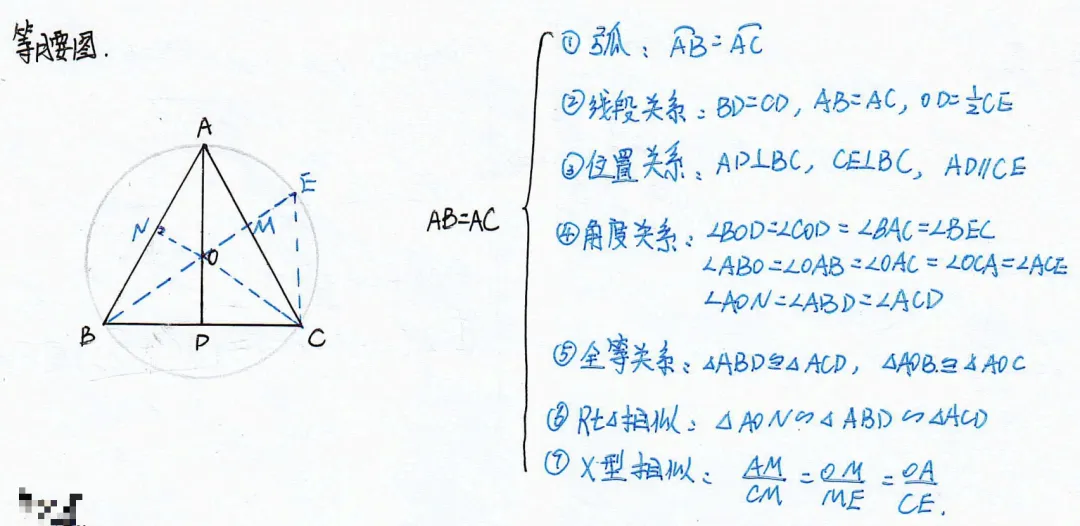 等腰图.
A
E
N
M
O
B
D
C
AB=AC
①弧: A͡B=A͡C
②线段关系: BD=CD, AB=AC, OD=½CE
③位置关系: AD⊥BC, CE⊥BC, AD∥CE
④角度关系: ∠BOD=∠COD=∠BAC=∠BEC
∠ABO=∠OAB=∠OAC=∠OCA=∠ACE
∠AON=∠ABD=∠ACD
⑤全等关系: △ABD≌△ACD, △AOB≌△AOC
⑥Rt△相似: △AON∽△ABD∽△ACD
⑦X型相似: AM/CM=OM/ME=OA/CE.